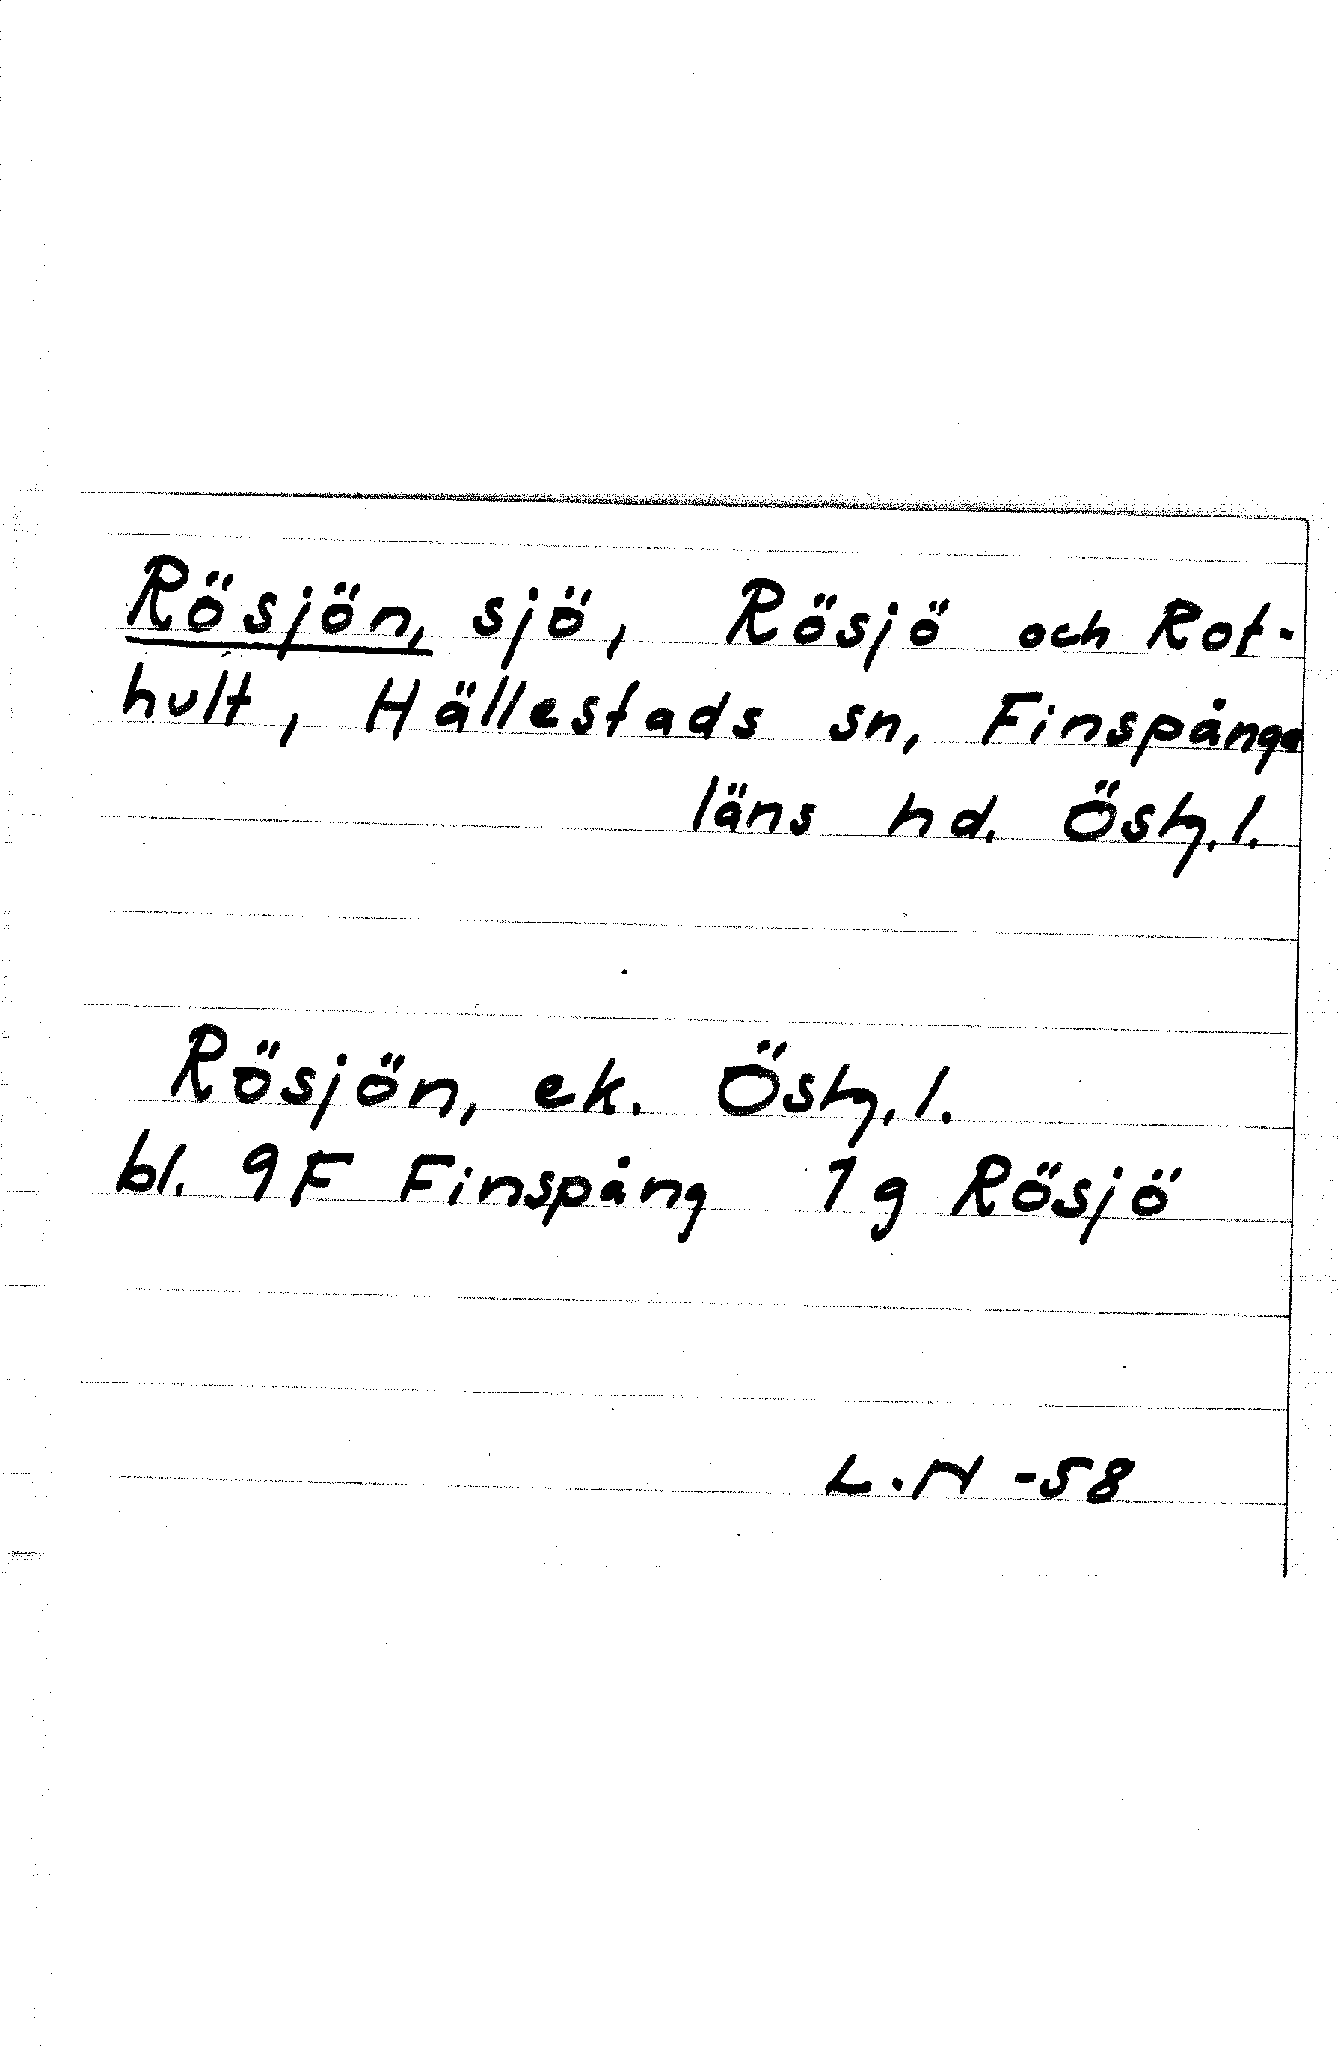 Rösjön, sjö, Rösjö och Rot-
hult, Hällestads sn, Finspånga
läns hd. Östg. l.
Rösjön, ek. Östg. l.
bl. 9F Finspång 1g Rösjö
L.N -58